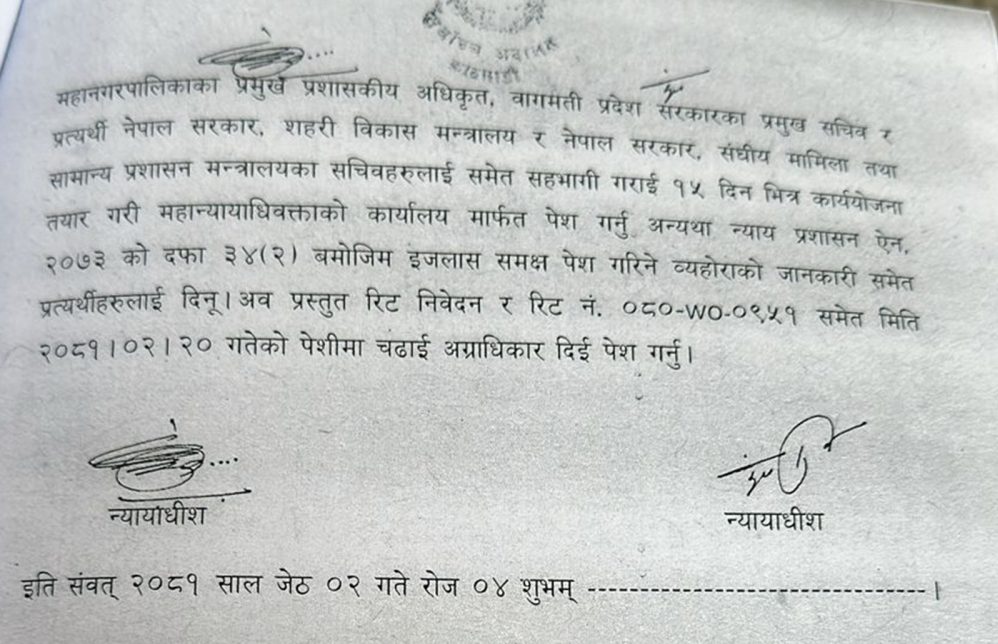 सर्वोच्च अदालत
काठमाडौं
महानगरपालिकाका प्रमुख प्रशासकीय अधिकृत, वागमती प्रदेश सरकारका प्रमुख सचिव र
प्रत्यर्थी नेपाल सरकार, शहरी विकास मन्त्रालय र नेपाल सरकार, संघीय मामिला तथा
सामान्य प्रशासन मन्त्रालयका सचिवहरुलाई समेत सहभागी गराई १५ दिन भित्र कार्ययोजना
तयार गरी महान्यायाधिवक्ताको कार्यालय मार्फत पेश गर्नु अन्यथा न्याय प्रशासन ऐन,
२०७३ को दफा ३४(२) बमोजिम इजलास समक्ष पेश गरिने व्यहोराको जानकारी समेत
प्रत्यर्थीहरुलाई दिनू। अव प्रस्तुत रिट निवेदन र रिट नं. ०८०-WO-०९५१ समेत मिति
२०८१।०२।२० गतेको पेशीमा चढाई अग्राधिकार दिई पेश गर्नु।
न्यायाधीश
न्यायाधीश
इति संवत् २०८१ साल जेठ ०२ गते रोज ०४ शुभम् --------------------------------।